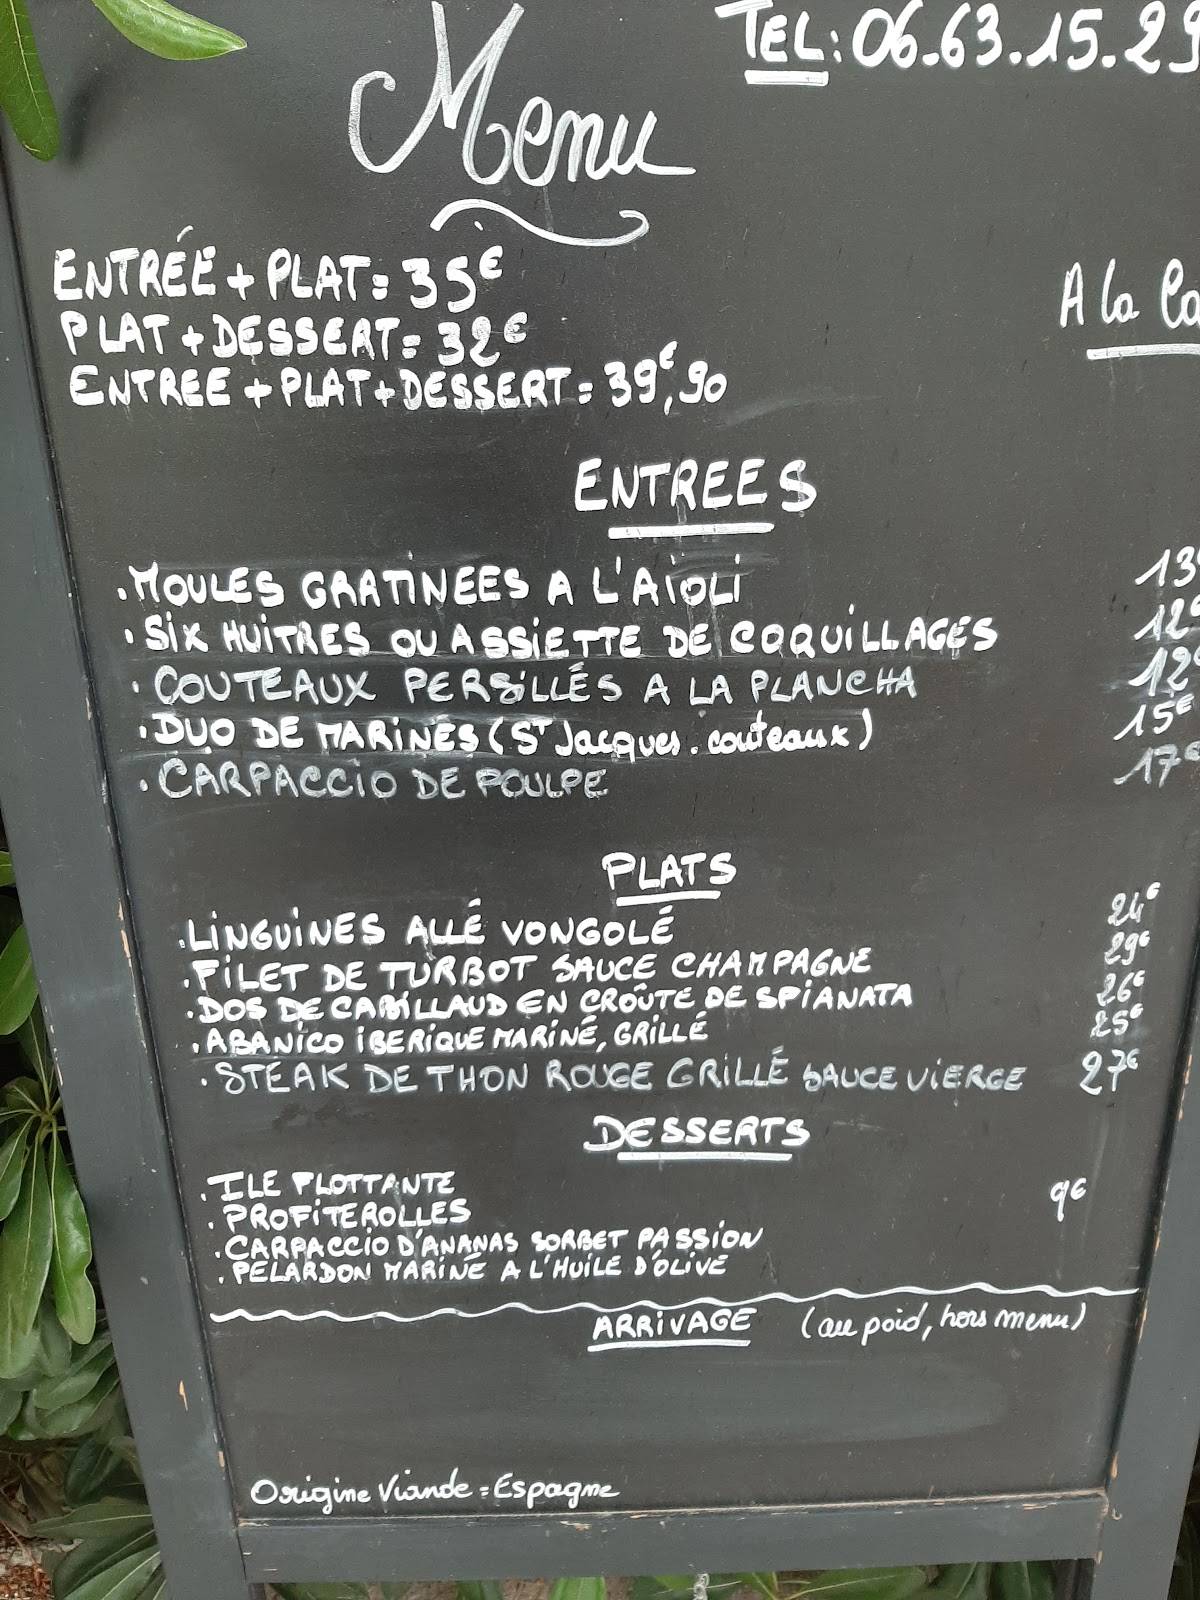 Menu
TEL: 06.63.15.29
ENTRÉE + PLAT = 35€
PLAT + DESSERT = 32€
ENTREE + PLAT + DESSERT = 39€,90
A la
ENTREES
. MOULES GRATINEES A L'AÏOLI 13€
. SIX HUITRES OU ASSIETTE DE COQUILLAGES 12€
. COUTEAUX PERSILLÉS A LA PLANCHA 12€
. DUO DE MARINÉS (ST Jacques. couteaux) 15€
. CARPACCIO DE POULPE 17€
PLATS
. LINGUINES ALLÉ VONGOLÉ 24€
. FILET DE TURBOT SAUCE CHAMPAGNE 29€
. DOS DE CABILLAUD EN CROÛTE DE SPIANATA 26€
. ABANICO IBERIQUE MARINÉ, GRILLÉ 25€
. STEAK DE THON ROUGE GRILLÉ SAUCE VIERGE 27€
DESSERTS
. ILE FLOTTANTE 9€
. PROFITEROLLES
. CARPACCIO D'ANANAS SORBET PASSION
. PELARDON MARINÉ A L'HUILE D'OLIVE
ARRIVAGE (au poid, hors menu)
Origine Viande = Espagne